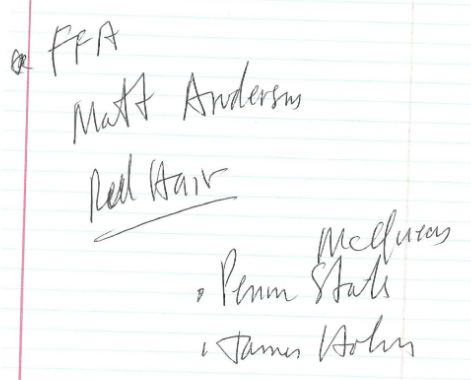 FFA
Matt Anderson
Red Hair
Penn State
James